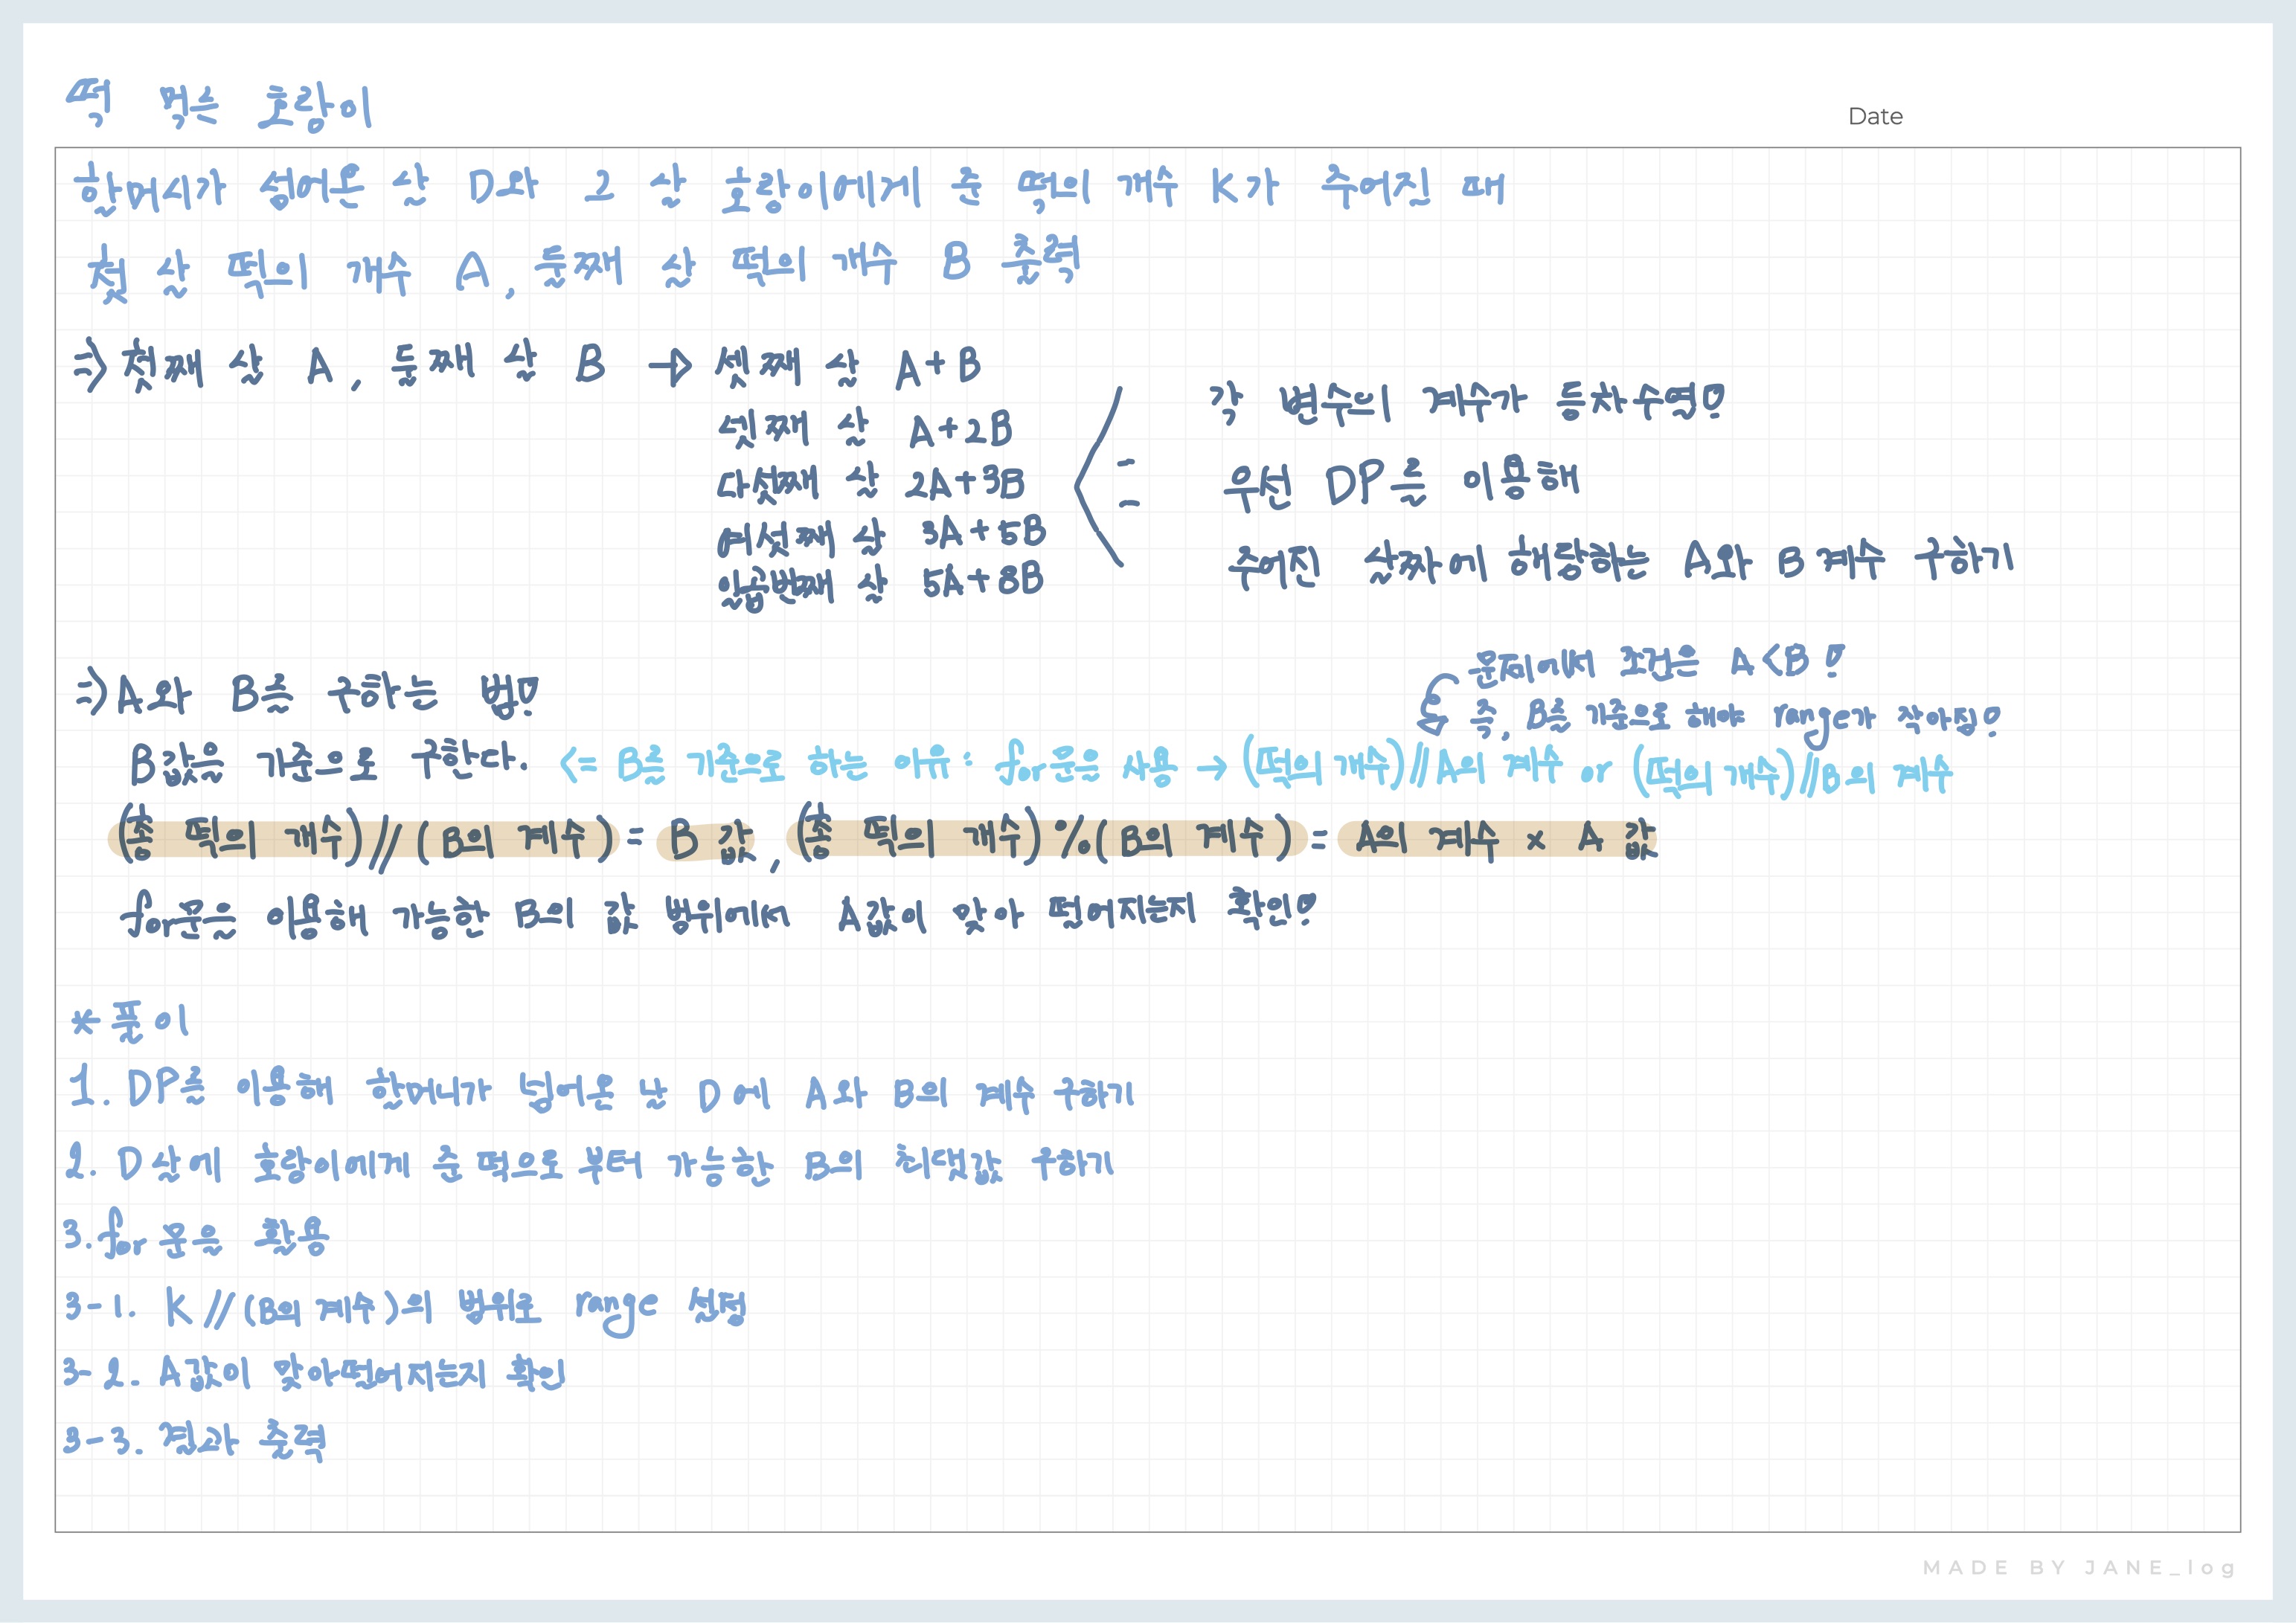 떡 먹는 호랑이
Date
할머니가 넘어온 날 D와 그 날 호랑이에게 준 떡의 개수 K가 주어질 때
첫 날 떡의 개수 A, 둘째 날 떡의 개수 B 출력
=> 첫째 날 A, 둘째 날 B → 셋째 날 A+B
넷째 날 A+2B
다섯째 날 2A+3B
여섯째 날 3A+5B
일곱번째 날 5A+8B
각 변수의 계수가 등차수열!
우선 DP를 이용해
주어진 날짜에 해당하는 A와 B 계수 구하기
=> A와 B를 구하는 법!
문제에서 조건은 A<B !
즉, B를 기준으로 해야 range가 작아짐!
B값을 기준으로 구한다. <= B를 기준으로 하는 이유 : for문을 사용 → (떡의 개수)//A의 계수 or (떡의 개수)//B의 계수
(총 떡의 개수)//(B의 계수) = B 값, (총 떡의 개수)%(B의 계수) = A의 계수 x A 값
for문을 이용해 가능한 B의 값 범위에서 A값이 맞아 떨어지는지 확인!
* 풀이
1. DP를 이용해 할머니가 넘어온 날 D에 A와 B의 계수 구하기
2. D날에 호랑이에게 준 떡으로 부터 가능한 B의 최댓값 구하기
3. for 문을 활용
3-1. K//(B의 계수)의 범위로 range 설정
3-2. A값이 맞아떨어지는지 확인
3-3. 결과 출력
MADE BY JANE_log